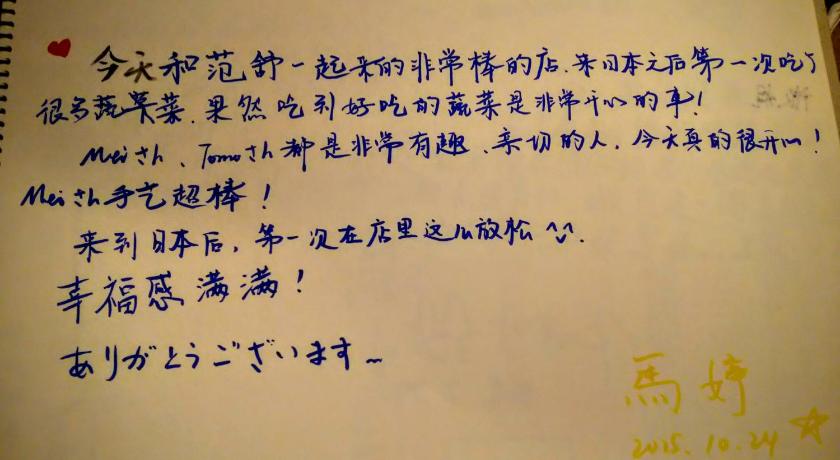 今天和范舒一起来的非常棒的店、来日本之后第一次吃了
很多蔬菜、果然吃到好吃的蔬菜是非常开心的事!
Meiさん、Tomoさん都是非常有趣、亲切的人、今天真的很开心!
Meiさん手艺超棒!
来到日本后,第一次在店里这么放松^^.
幸福感满满!
ありがとうございます~
馬婷
2015.10.24